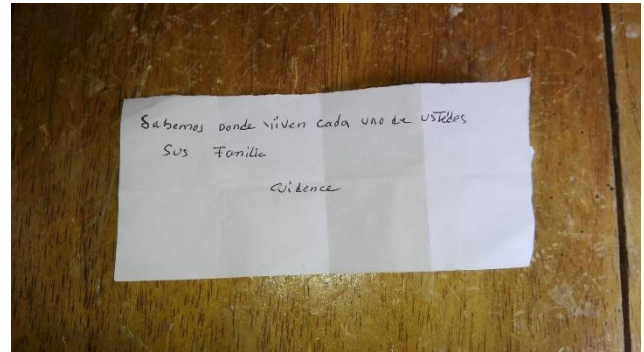 Sabemos Donde viven cada uno de ustedes
Sus Familia
cuidence